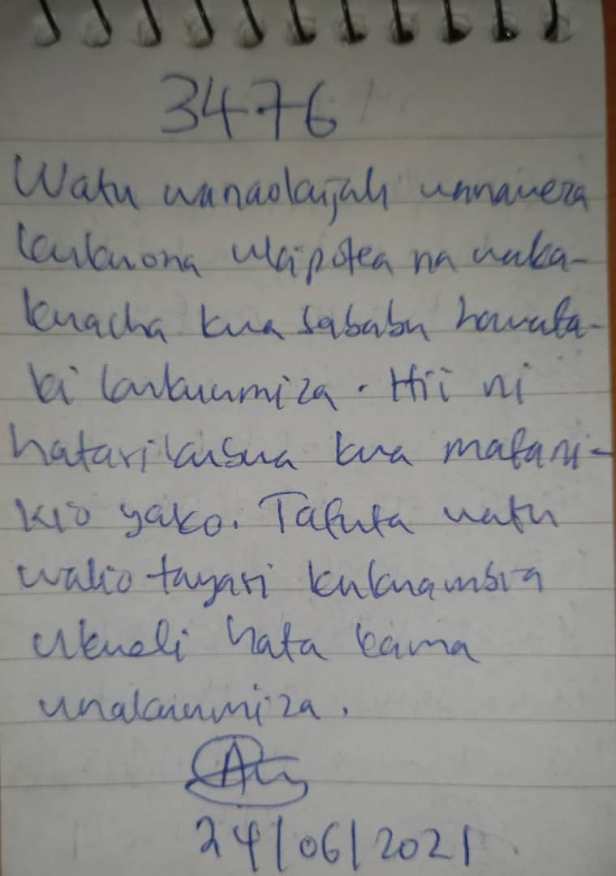 3476
Watu wanaokujali wanaweza
kukuona ukipotea na waka-
kuacha kwa sababu hawata-
ki kukuumiza. Hii ni
hatari kubwa kwa mafani-
kio yako. Tafuta watu
walio tayari kukuambia
ukweli hata kama
unakuumiza.
24/06/2021